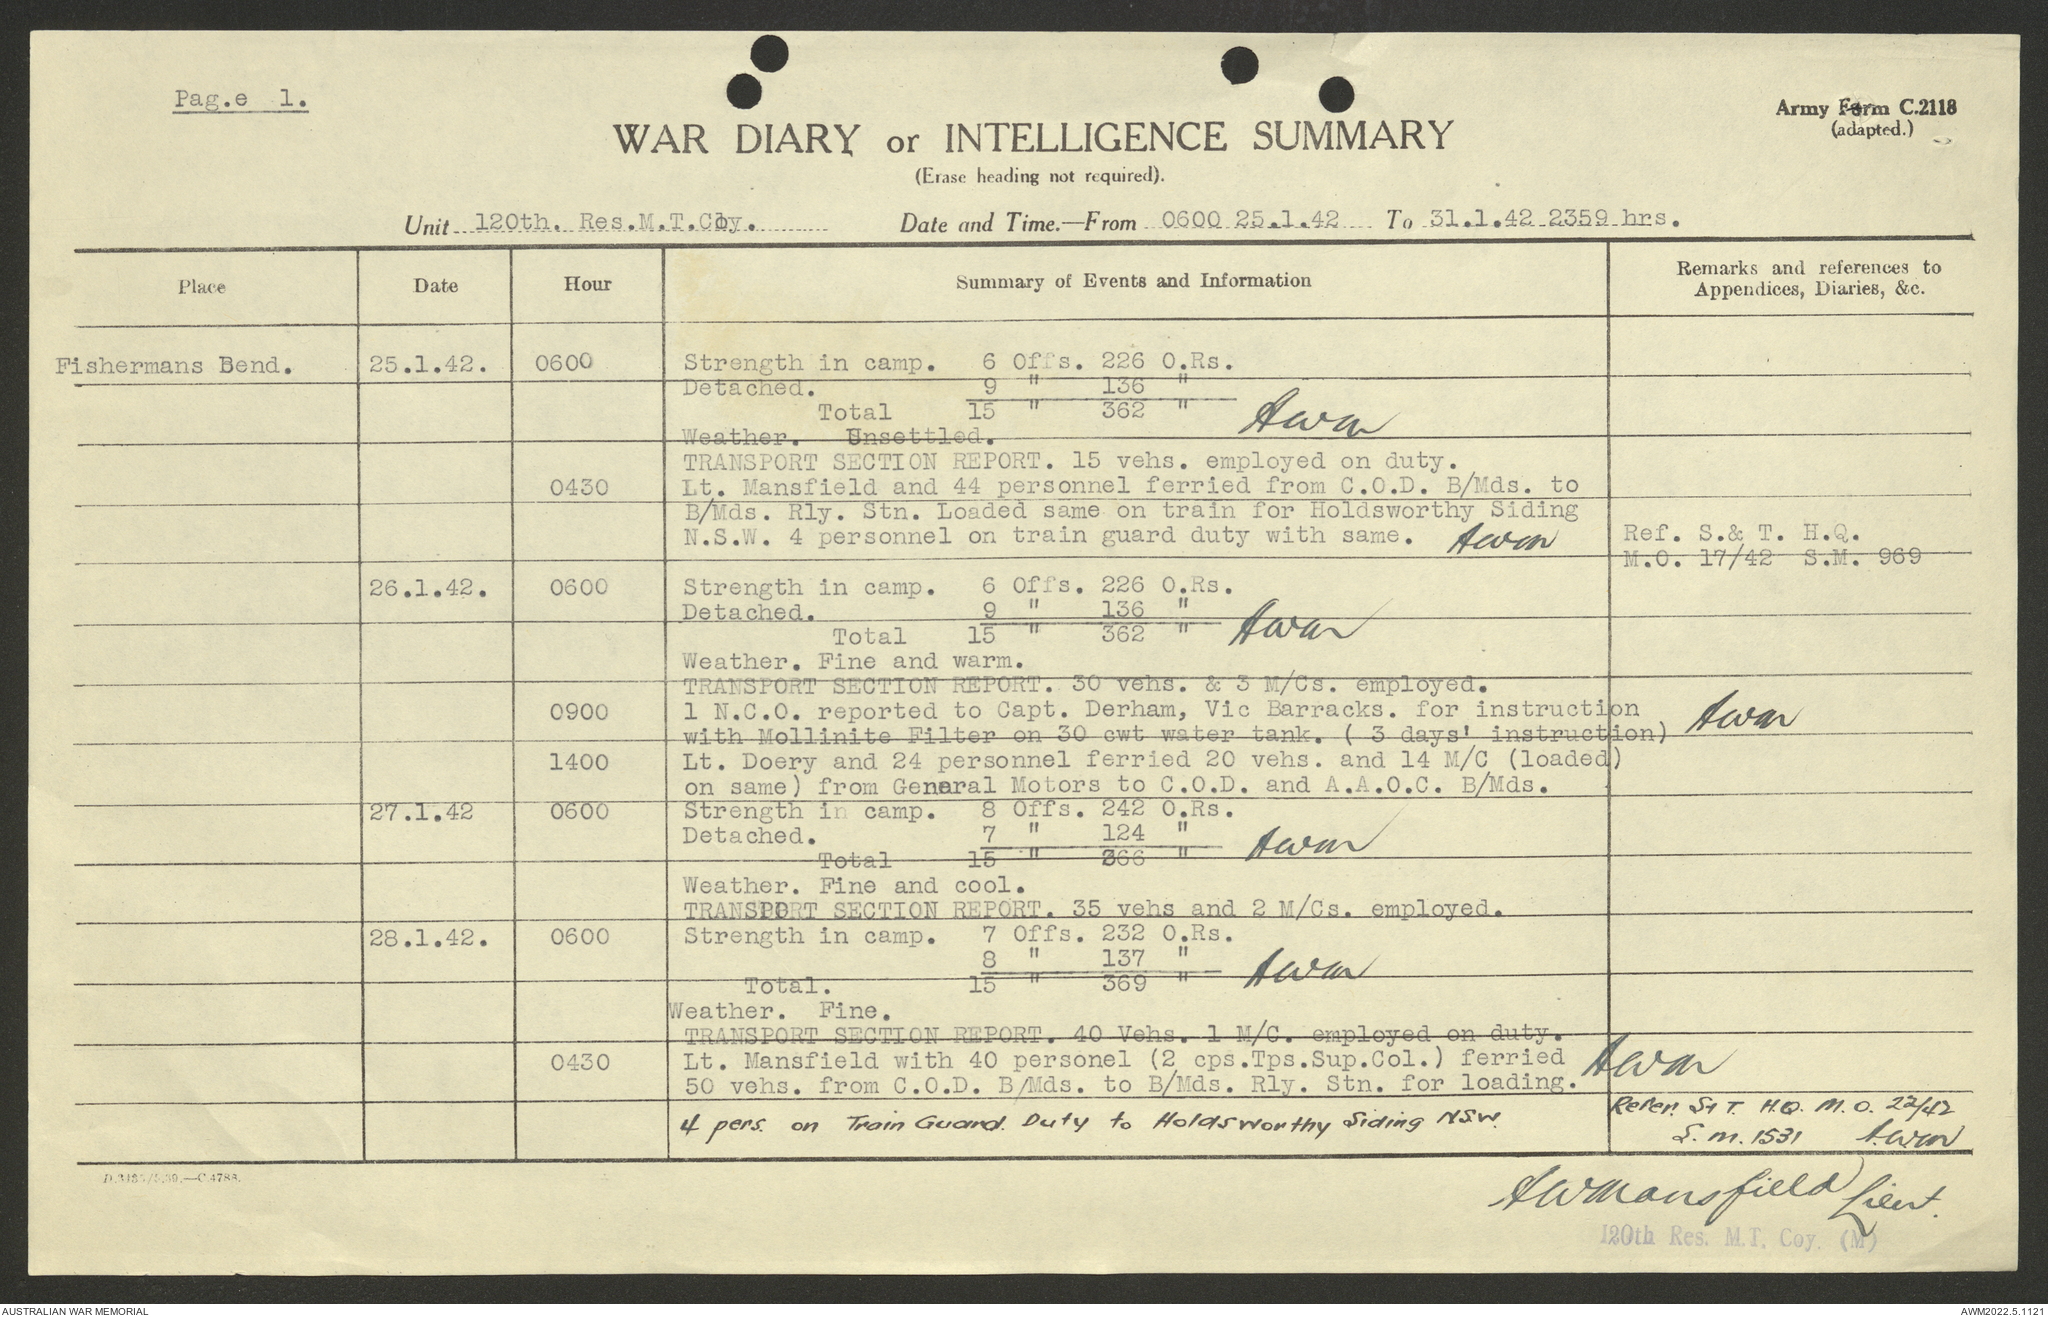 Pag.e 1.
Army Form C.2118
(adapted.)
WAR DIARY or INTELLIGENCE SUMMARY
(Erase heading not required).
Unit 120th. Res.M.T.Coy. Date and Time.—From 0600 25.1.42 To 31.1.42 2359 hrs.
Place Date Hour Summary of Events and Information Remarks and references to
Appendices, Diaries, &c.
Fishermans Bend. 25.1.42. 0600 Strength in camp. 6 Offs. 226 O.Rs.
Detached. 9 " 136 "
Total 15 " 362 " AWM
Weather. Unsettled.
TRANSPORT SECTION REPORT. 15 vehs. employed on duty.
0430 Lt. Mansfield and 44 personnel ferried from C.O.D. B/Mds. to
B/Mds. Rly. Stn. Loaded same on train for Holdsworthy Siding
N.S.W. 4 personnel on train guard duty with same. AWM Ref. S.& T. H.Q.
M.O. 17/42 S.M. 969
26.1.42. 0600 Strength in camp. 6 Offs. 226 O.Rs.
Detached. 9 " 136 "
Total 15 " 362 " AWM
Weather. Fine and warm.
TRANSPORT SECTION REPORT. 30 vehs. & 3 M/Cs. employed.
0900 1 N.C.O. reported to Capt. Derham, Vic Barracks. for instruction AWM
with Mollinite Filter on 30 cwt water tank. ( 3 days' instruction)
1400 Lt. Doery and 24 personnel ferried 20 vehs. and 14 M/C (loaded)
on same) from General Motors to C.O.D. and A.A.O.C. B/Mds.
27.1.42 0600 Strength in camp. 8 Offs. 242 O.Rs.
Detached. 7 " 124 "
Total 15 " 366 " AWM
Weather. Fine and cool.
TRANSPORT SECTION REPORT. 35 vehs and 2 M/Cs. employed.
28.1.42. 0600 Strength in camp. 7 Offs. 232 O.Rs.
8 " 137 "
Total. 15 " 369 " AWM
Weather. Fine.
TRANSPORT SECTION REPORT. 40 Vehs. 1 M/C. employed on duty.
0430 Lt. Mansfield with 40 personel (2 cps.Tps.Sup.Col.) ferried AWM
50 vehs. from C.O.D. B/Mds. to B/Mds. Rly. Stn. for loading.
4 pers. on Train Guard. Duty to Holdsworthy Siding NSW. Refer. S+T. H.Q. M.O. 22/42
S.M. 1531 AWM
D.3135/5.39.—C.4788.
AWMansfield Lieut.
120th Res. M.T. Coy. (M)
AUSTRALIAN WAR MEMORIAL AWM2022.5.1121